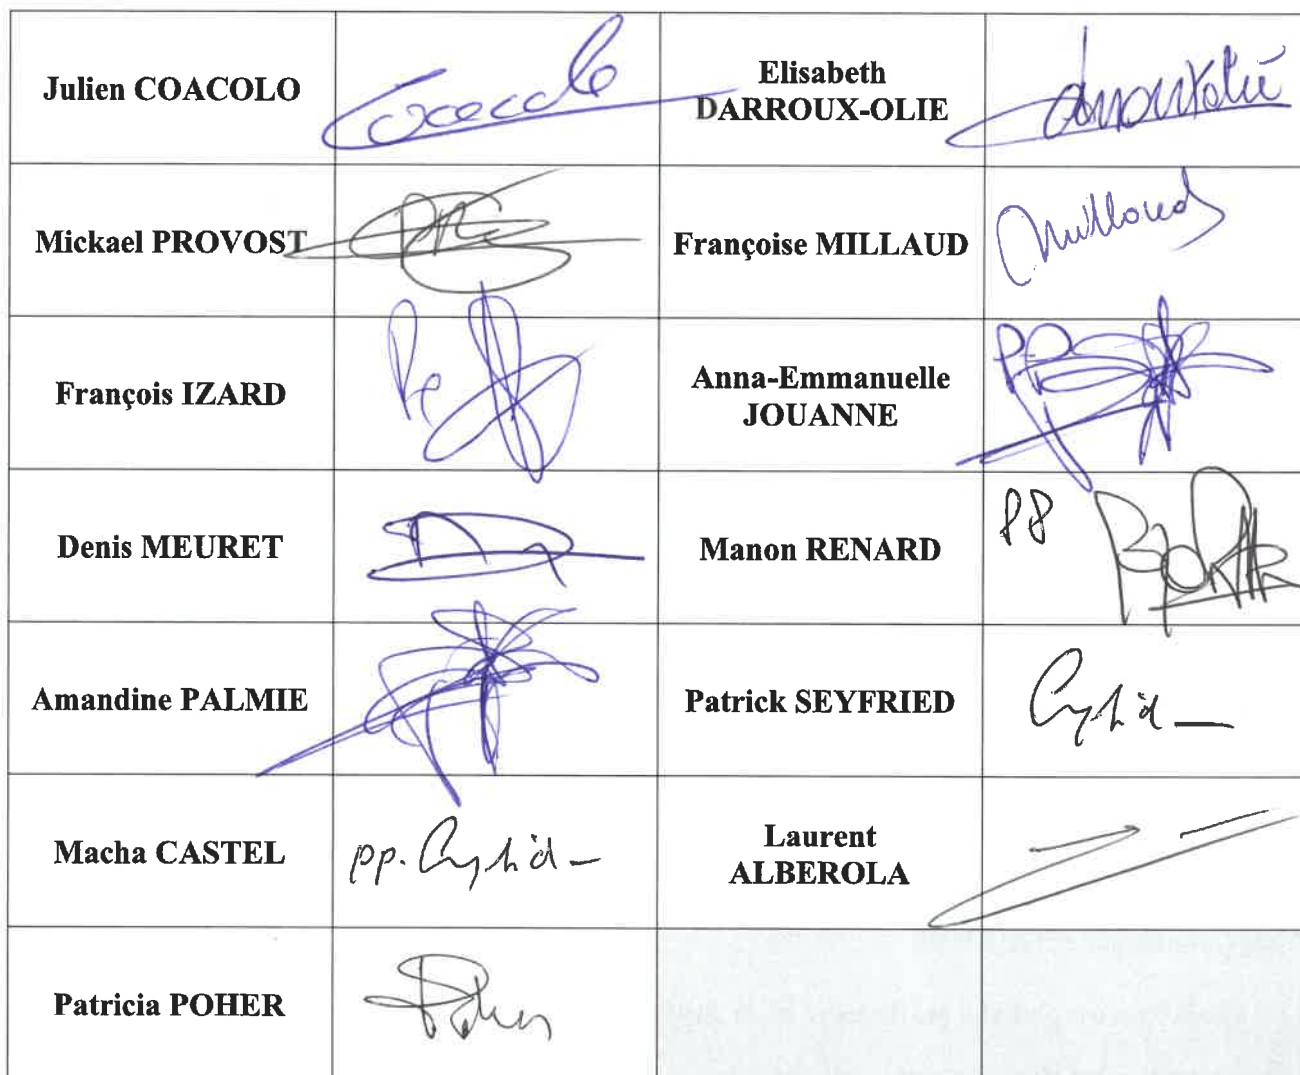 Julien COACOLO
Coacolo
Elisabeth
DARROUX-OLIE
Mickael PROVOST
Françoise MILLAUD
Millaud
François IZARD
Anna-Emmanuelle
JOUANNE
PP
Denis MEURET
Manon RENARD
Amandine PALMIE
Patrick SEYFRIED
Macha CASTEL
pp.
Laurent
ALBEROLA
Patricia POHER
Poher